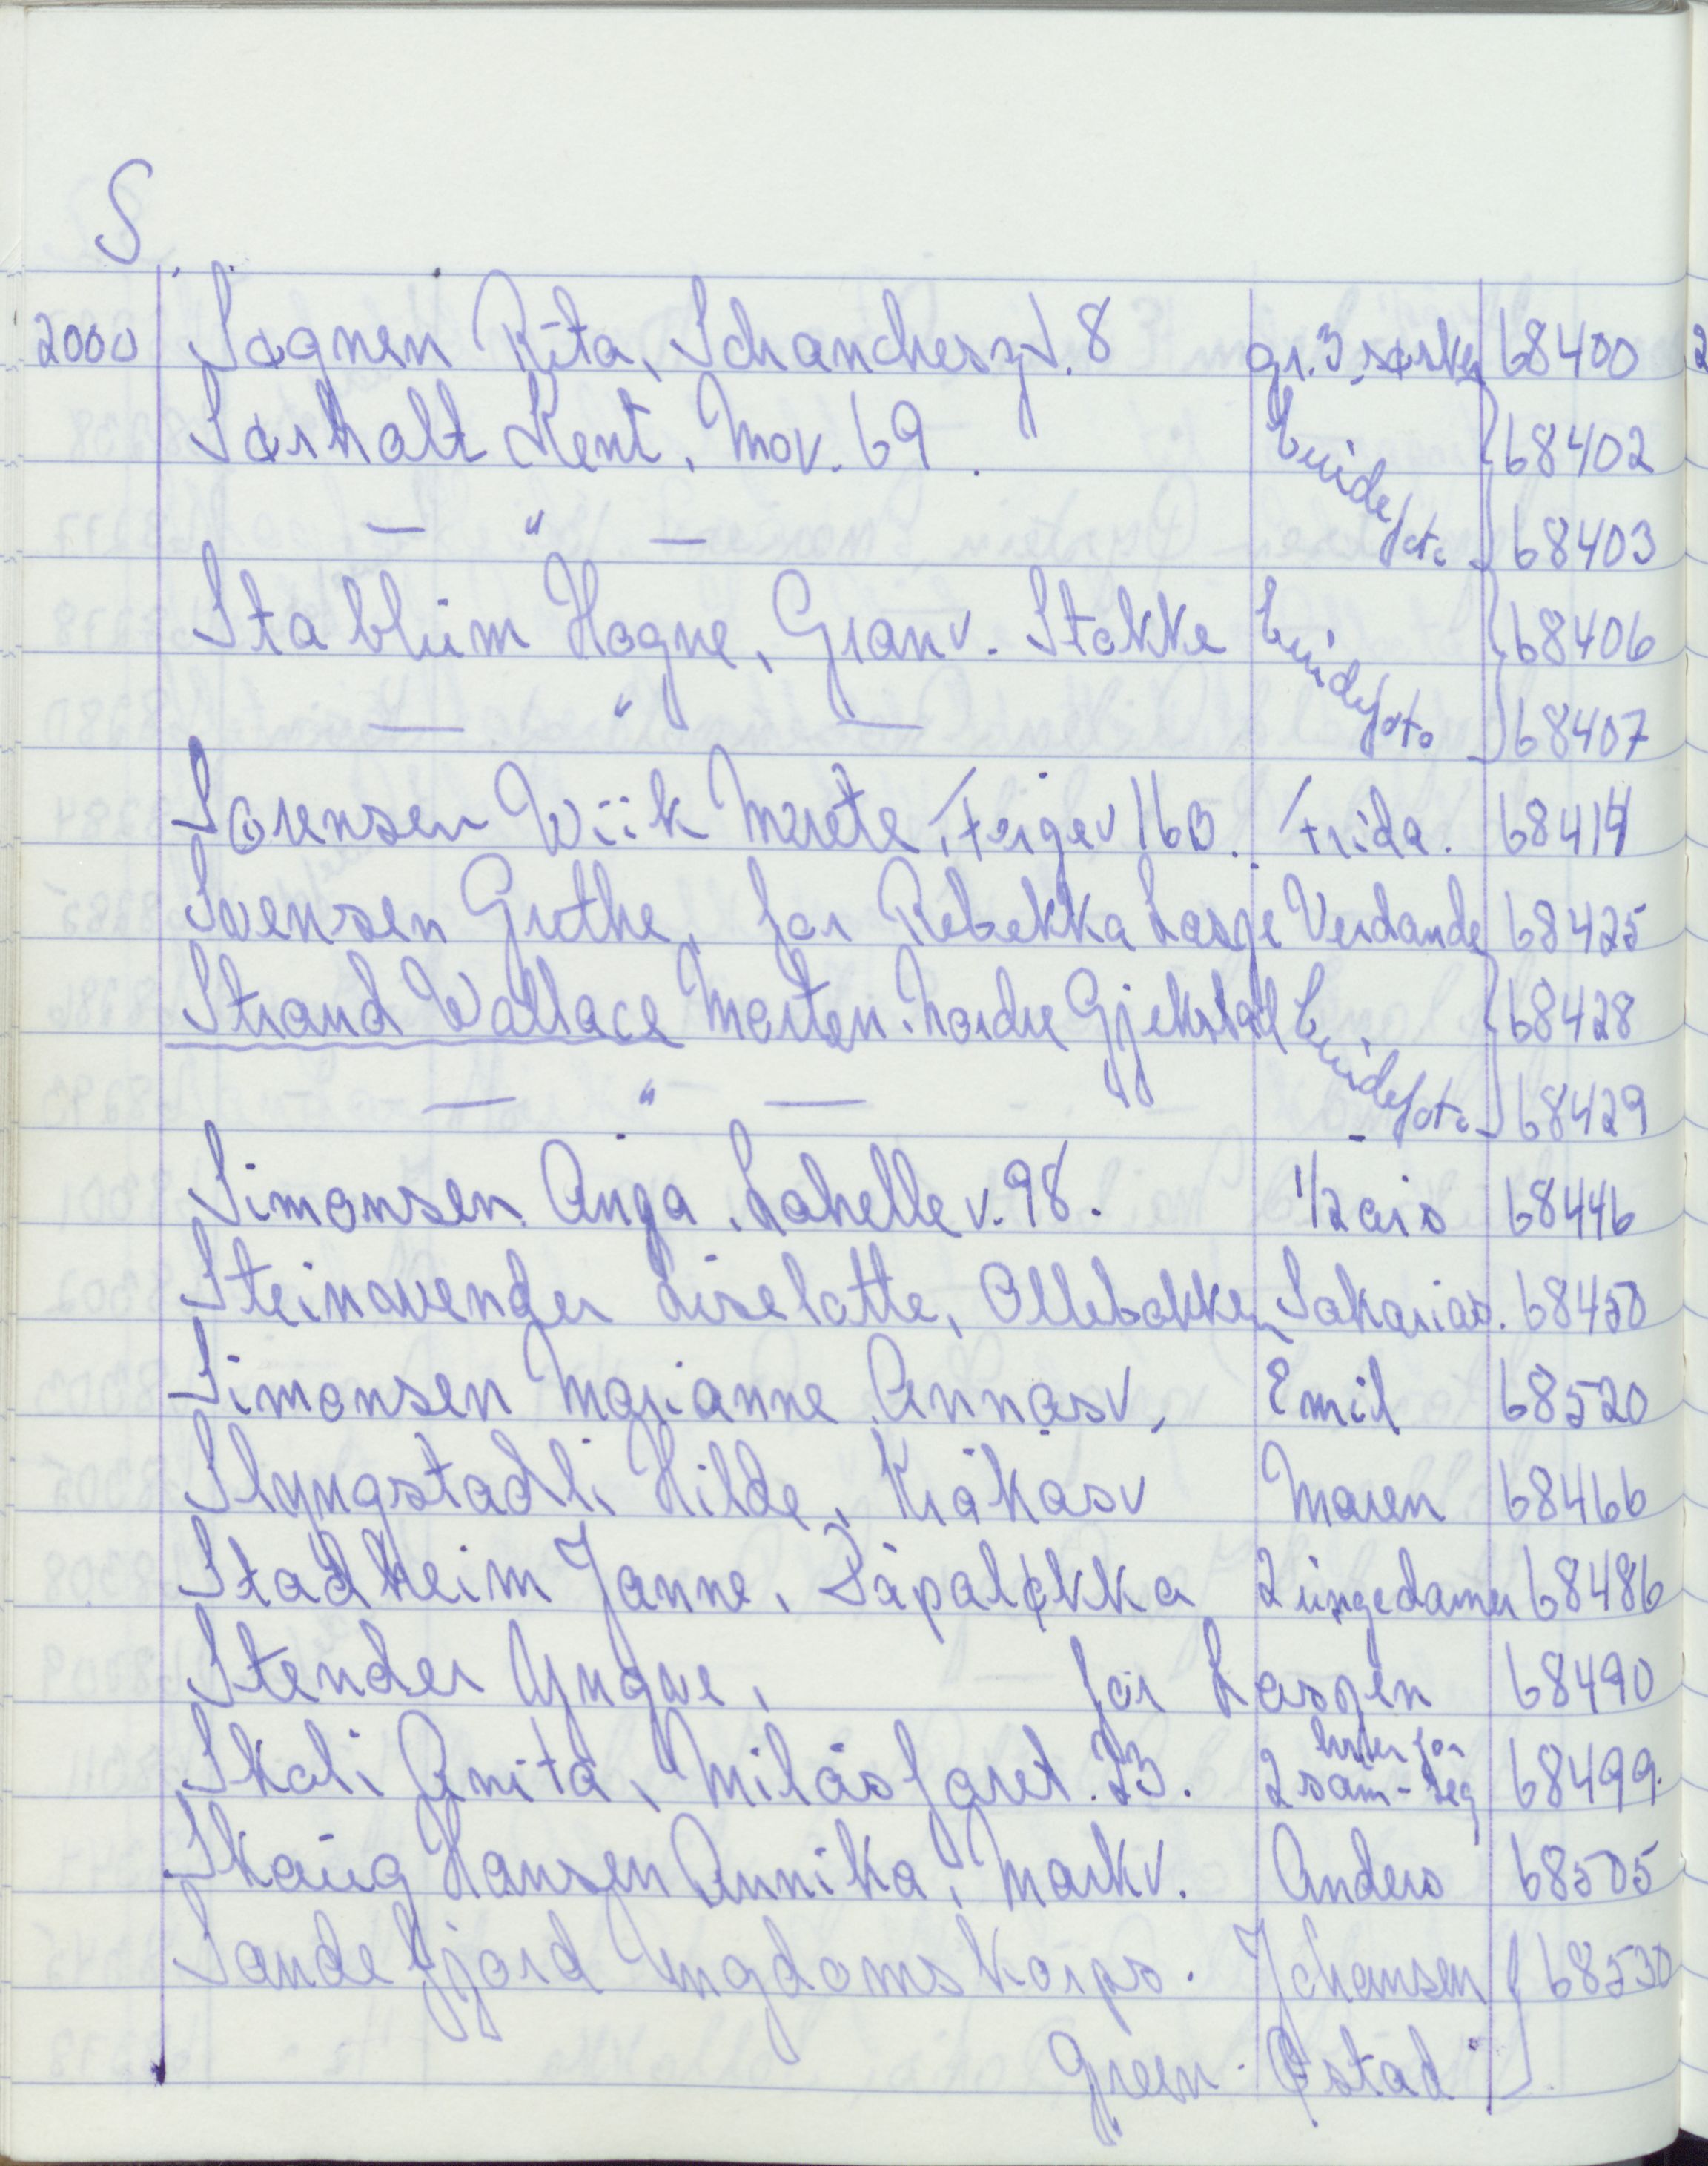 S
2000 Søgnen Rita, Schanchesgt. 8 gr. 3 søsken 68400
Sørholt Kent, Mov. 69. brudefoto 68402
— " — 68403
Stablum Hogne, Granv. Stokke brudefoto 68406
— " — 68407
Sørensen Wiik Merete, Fergev 16B. Frida. 68414
Svensen Grethe, for Rebekka Lasse Verdande 68425
Strand Wallace Morten. Nordre Gjekstad brudefoto 68428
— " — 68429
Simonsen Anga, Lahelle v. 98. 1/2 års 68446
Liselotte, Ollebakken Sakarias. 68450
Simonsen Marianne Annasv, Emil 68520
Slyngstadli Hilde, Kråkåsv Maren 68466
Stadheim Janne, Såpeløkka 2 ungedamer 68486
Stender Yngve, for Lassen 68490
Skoli Anita, Milåsfaret. 23. 2 søm-seg 68499.
Skaug Hansen Annika, Markv. Anders 68505
Sandefjord Ungdomskorps. Johansen 68530
Green. Østad